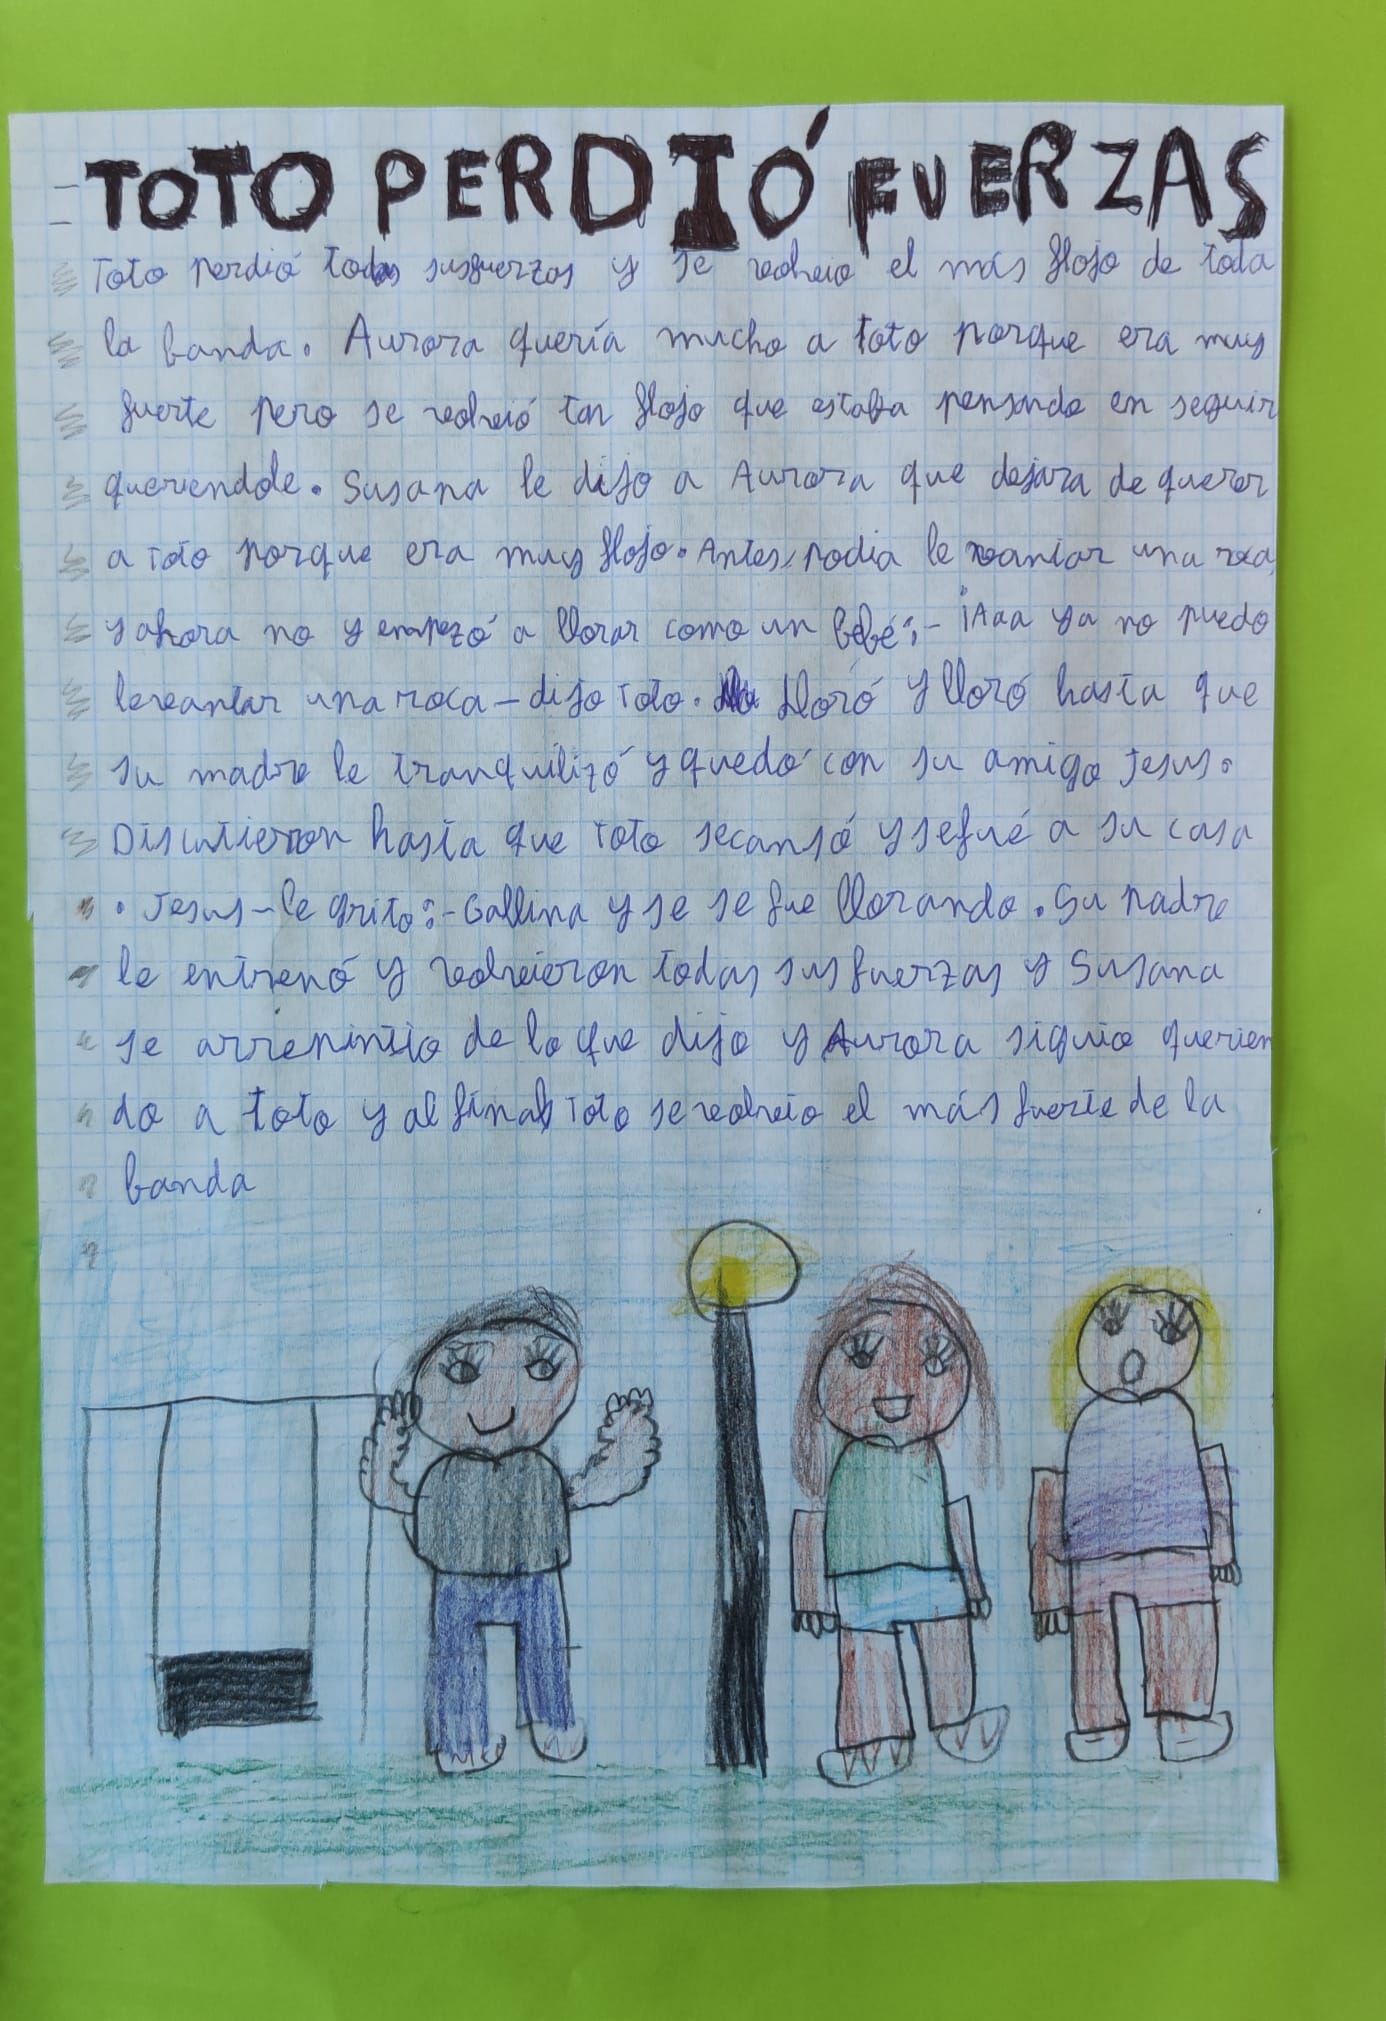 TOTO PERDIÓ FUERZAS
Toto perdió todas susfuerzas y se volvio el más flojo de toda
la banda. Aurora quería mucho a toto porque era muy
fuerte pero se volvió tan flojo que estaba pensando en seguir
queriendole. Susana le dijo a Aurora que dejara de querer
a Toto porque era muy flojo. Antes, podia le vantar una roca,
y ahora no y empezó a llorar como un bebé:- ¡Aaa ya no puedo
levantar una roca - dijo Toto. lloró y lloró hasta que
su madre le tranquilizó y quedó con su amigo Jesus.
Discutieron hasta que Toto secansó y sefué a su casa
. Jesus-le grito:-Gallina y se se fue llorando. Su padre
le entrenó y volvieron todas sus fuerzas y Susana
se arrepintio de lo que dijo y Aurora siguio querien
do a toto y al final Toto sevolvio el más fuerte de la
banda